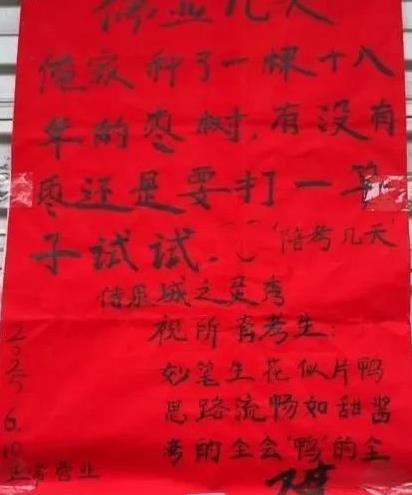 停业几天
俺家种了一棵十八
年的枣树.有没有
枣还是要打一竿
子试试.
陪考几天
视所有考生:
妙笔生花似片鸭
思路流畅如甜酱
考的全会"鸭"的全
2025
6.
10
正常营业